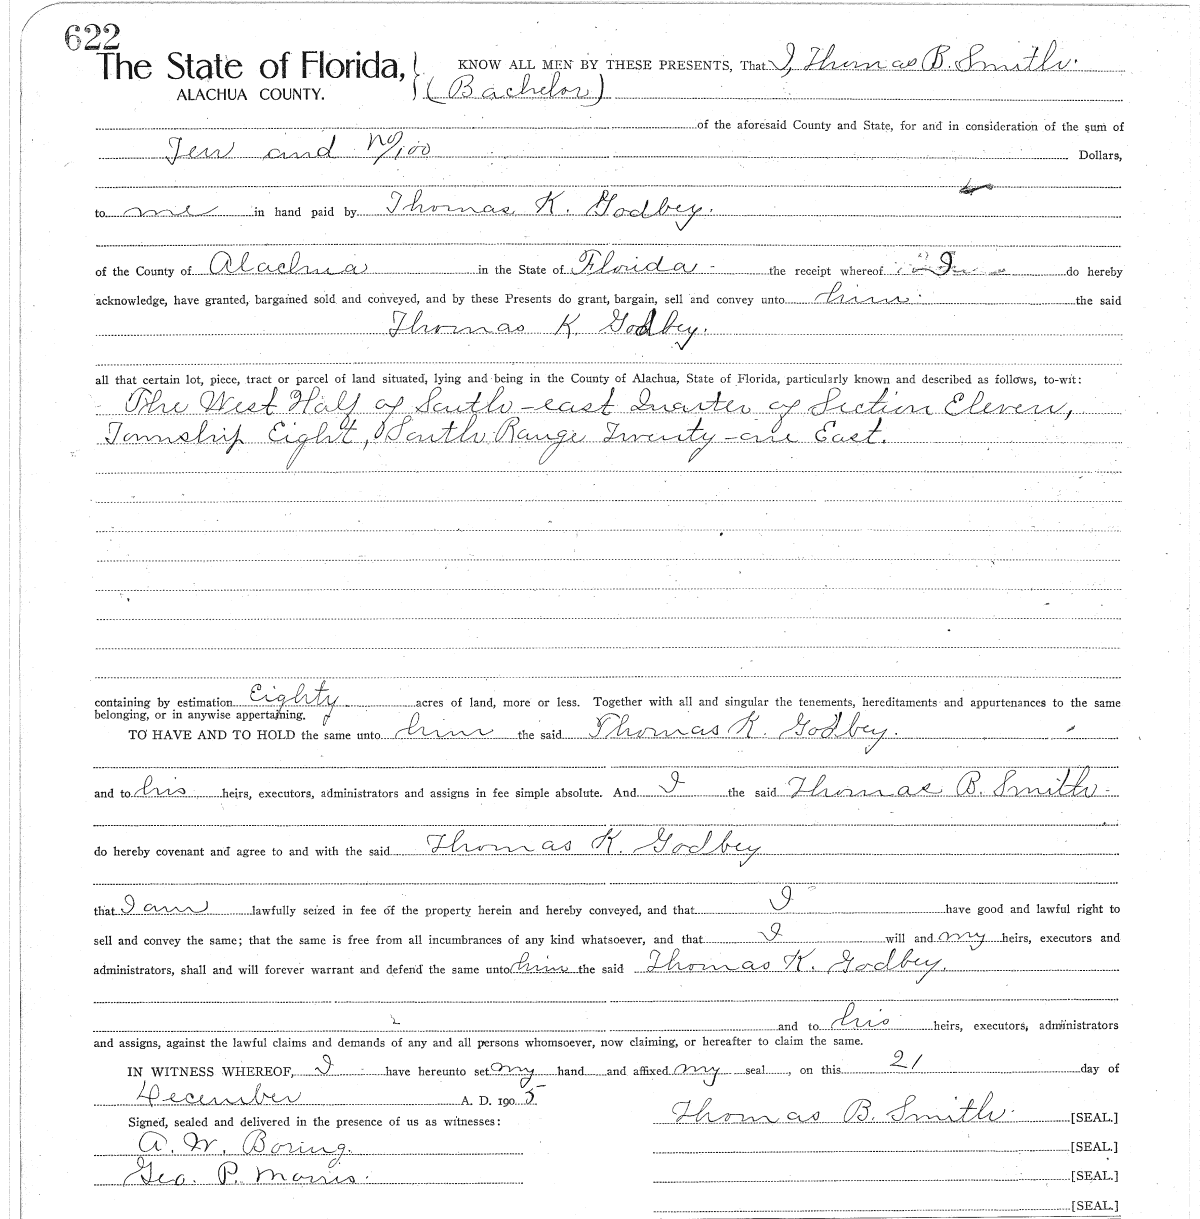 622
The State of Florida, KNOW ALL MEN BY THESE PRESENTS, That I, Thomas B. Smith.
ALACHUA COUNTY. (Bachelor)
of the aforesaid County and State, for and in consideration of the sum of
Ten and No/100 Dollars,
to me in hand paid by Thomas K. Godbey.
of the County of Alachua in the State of Florida - the receipt whereof I do hereby
acknowledge, have granted, bargained sold and conveyed, and by these Presents do grant, bargain, sell and convey unto him. the said
Thomas K. Godbey.
all that certain lot, piece, tract or parcel of land situated, lying and being in the County of Alachua, State of Florida, particularly known and described as follows, to-wit:
The West Half of South-east Quarter of Section Eleven,
Township Eight, South Range Twenty-one East.
containing by estimation Eighty acres of land, more or less. Together with all and singular the tenements, hereditaments and appurtenances to the same
belonging, or in anywise appertaining.
TO HAVE AND TO HOLD the same unto him the said Thomas K. Godbey.
and to his heirs, executors, administrators and assigns in fee simple absolute. And I the said Thomas B. Smith-
do hereby covenant and agree to and with the said Thomas K. Godbey
that I am lawfully seized in fee of the property herein and hereby conveyed, and that I have good and lawful right to
sell and convey the same; that the same is free from all incumbrances of any kind whatsoever, and that I will and my heirs, executors and
administrators, shall and will forever warrant and defend the same unto him the said Thomas K. Godbey.
and to his heirs, executors, administrators
and assigns, against the lawful claims and demands of any and all persons whomsoever, now claiming, or hereafter to claim the same.
IN WITNESS WHEREOF, I have hereunto set my hand and affixed my seal, on this 21 day of
December A. D. 1905
Thomas B. Smith. [SEAL.]
Signed, sealed and delivered in the presence of us as witnesses:
A. W. Boring. [SEAL.]
Geo. P. Morris. [SEAL.]
[SEAL.]